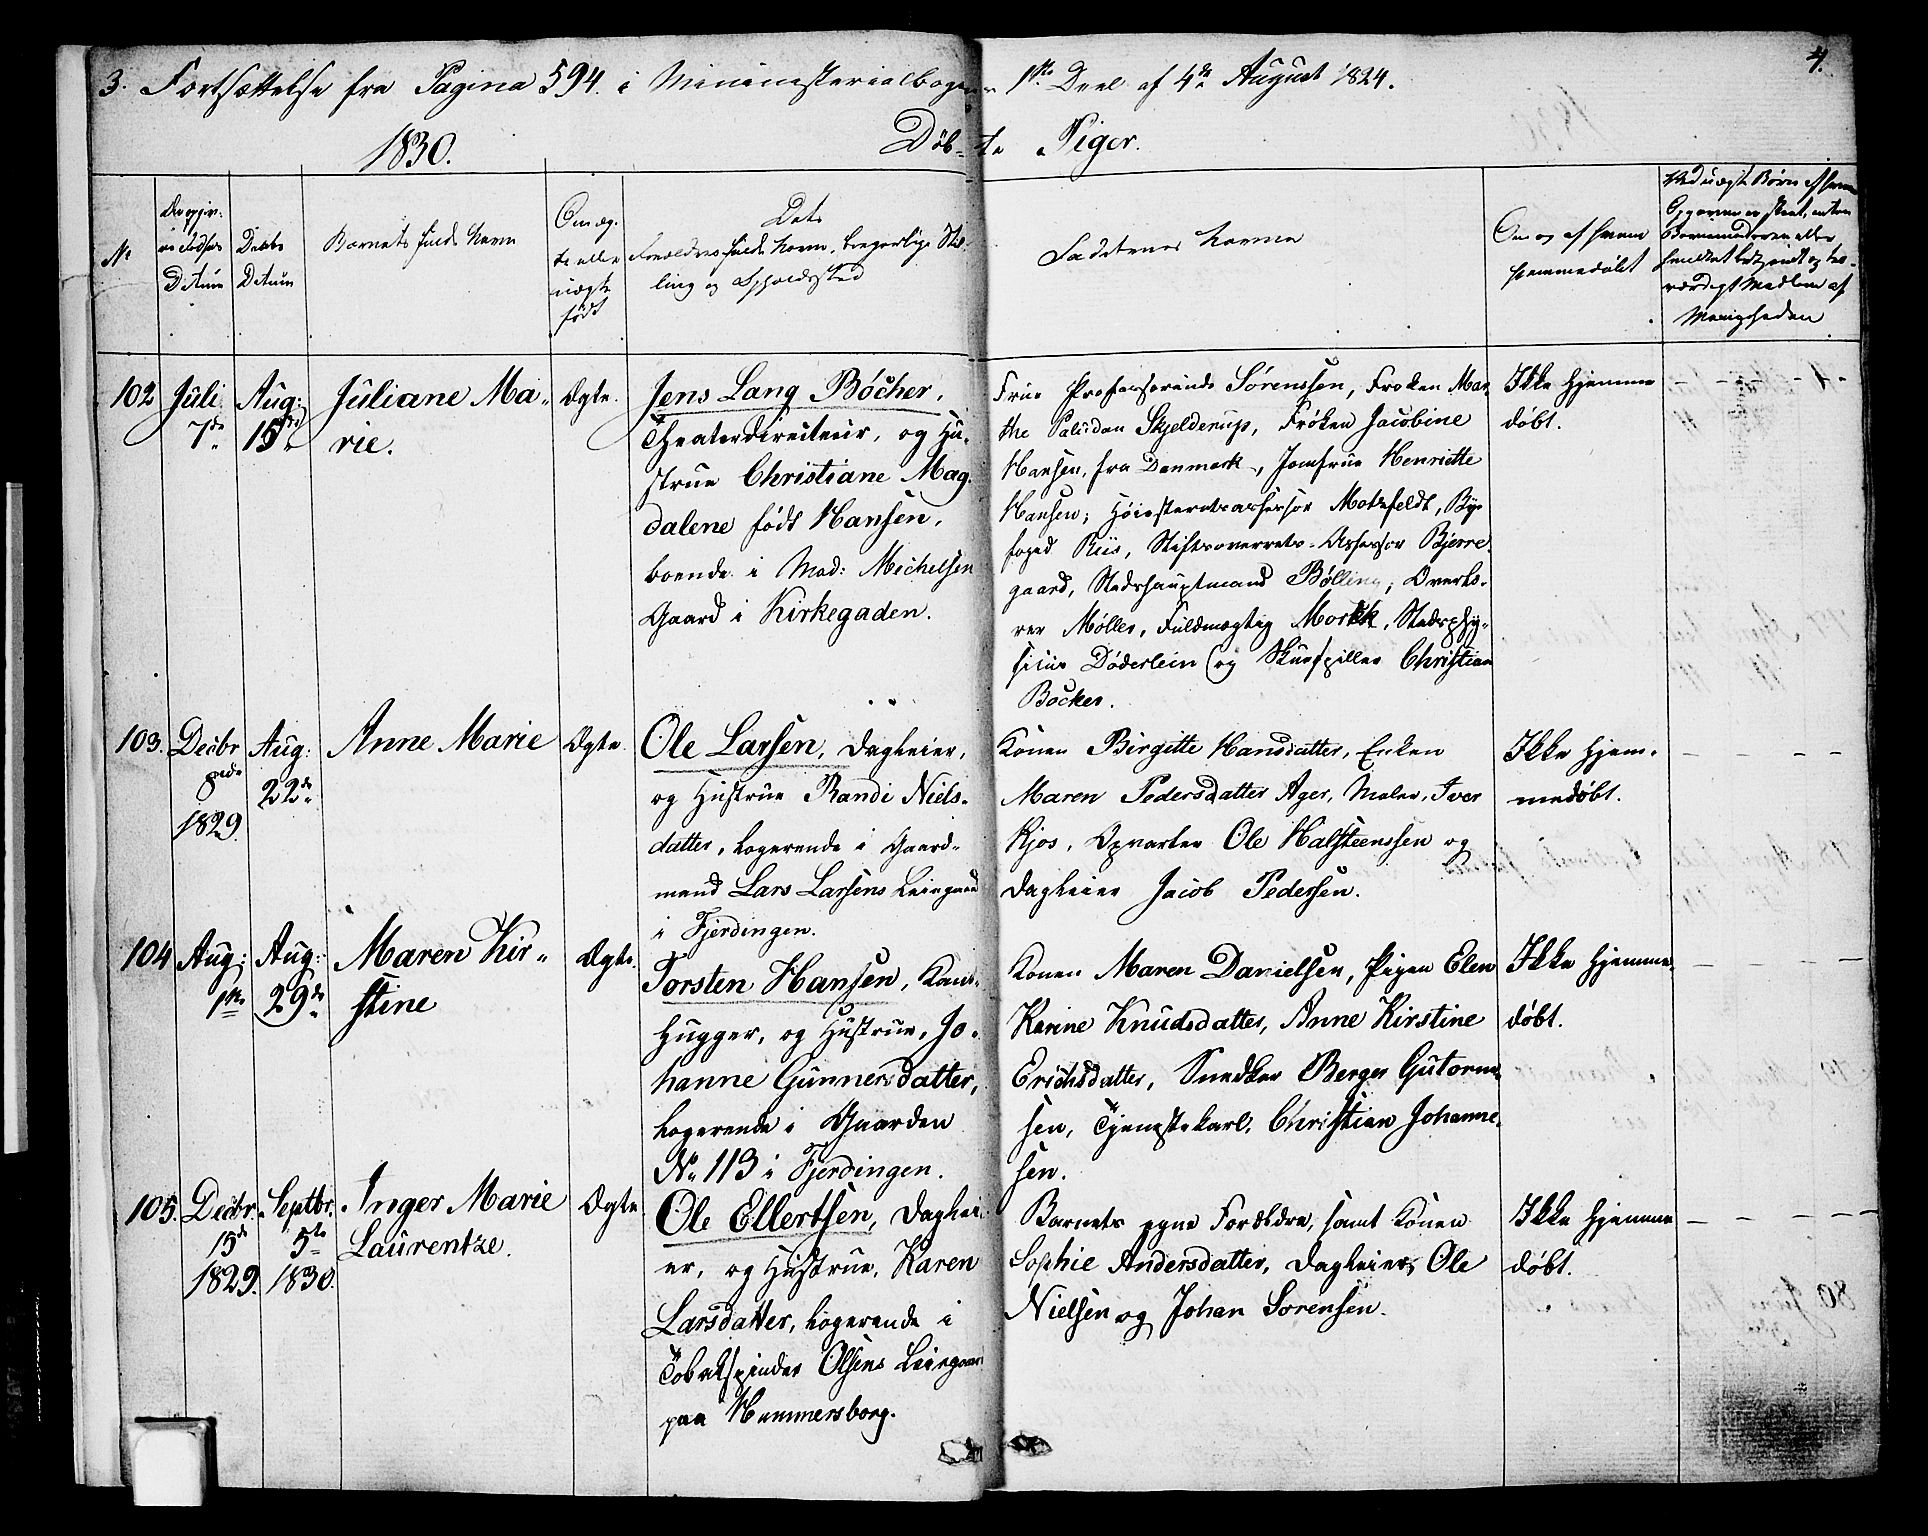 3. Fortsættelse fra Pagina 594. i Minimsterialbogen 1ste Deel af 4de August 1824.
4.
1830.
Døbte Piger.
No
Datum
Daabs
Datum
Barnets fulde Navn
Om æg-
te eller
uægte
født
Dets
Forældres fulde Navn, borgerlige Stil-
ling og Opholdssted
Faddernes Navne
Om og af hvem
hjemmedøbt
Ved uægte Børn af hvem
Opgaven er skeet, enten
Barnemoderen eller
hendtet bekjendt og tro-
værdigt Medlem af
Menigheden
102
Juli
7de
Aug:
15de
Juliane Ma-
rie.
Ægte.
Jens Lang Böcher,
Theaterdirecteur, og Hu-
strue Christiane Mag-
dalene født Hansen,
boende i Mad: Michelsen
Gaard i Kirkegaden.
Frue Professorinde Sörenssen, Frøken Mar-
the Paludan Skjelderup, Frøken Jacobine
Hansen, fra Danmark, Jomfrue Henriette
Hansen; Höiesteretsassessor Motzfeldt, By-
foged Riis, Stiftsoverrets-Assessor Bjerre-
gaard, Stadshauptmand Bölling, Overkø-
rer Møller, Fuldmægtig Morkk, Stadsphy-
sicus Döderlein og Skuespiller Christian
Bocker.
Ikke hjemme
døbt.
103.
Decbr
1829
Aug:
22de
Anne Marie
Ægte
Ole Larsen, Dagleier,
og Hustrue Randi Niels-
datter, logerende i Gaard-
mand Lars Larsens Leiegaard
i Fjerdingen.
Konen Birgitte Hansdatter, Enken
Maren Pedersdatter Ager, Maler, Iver
Kjos, Opvarter Ole Halsteenssen og
Dagleier Jacob Pedersen.
Ikke hjem-
medøbt.
104
Aug:
1ste
Aug:
29de
Maren Kir-
stine
Ægte.
Torsten Hansen,
hugger, og Hustrue, Jo-
hanne Gunnersdatter,
logerende i Gaarden
No 113 i Fjerdingen.
Konen Maren Danielsen, Pigen Elen
Karine Knudsdatter, Anne Kirstine
Erichsdatter, Snedker Berger Gutorm-
sen, Tjenestekarl, Christian Johanne-
sen.
Ikke hjemme-
døbt.
105.
Decbr.
15de
1829.
Septbr.
5te
1830.
Inger Marie
Laurentze.
Ægte
Ole Ellertsen, Daglei-
er, og Hustrue, Karen
Larsdatter, logerende i
Tobakspinder Olsens Leiegaard
paa Hammersborg.
Barnets egne Forældre, samt Konen
Sophie Andersdatter, Dagleier, Ole
Nielsen og Johan Sorensen.
Ikke hjemme
døbt.